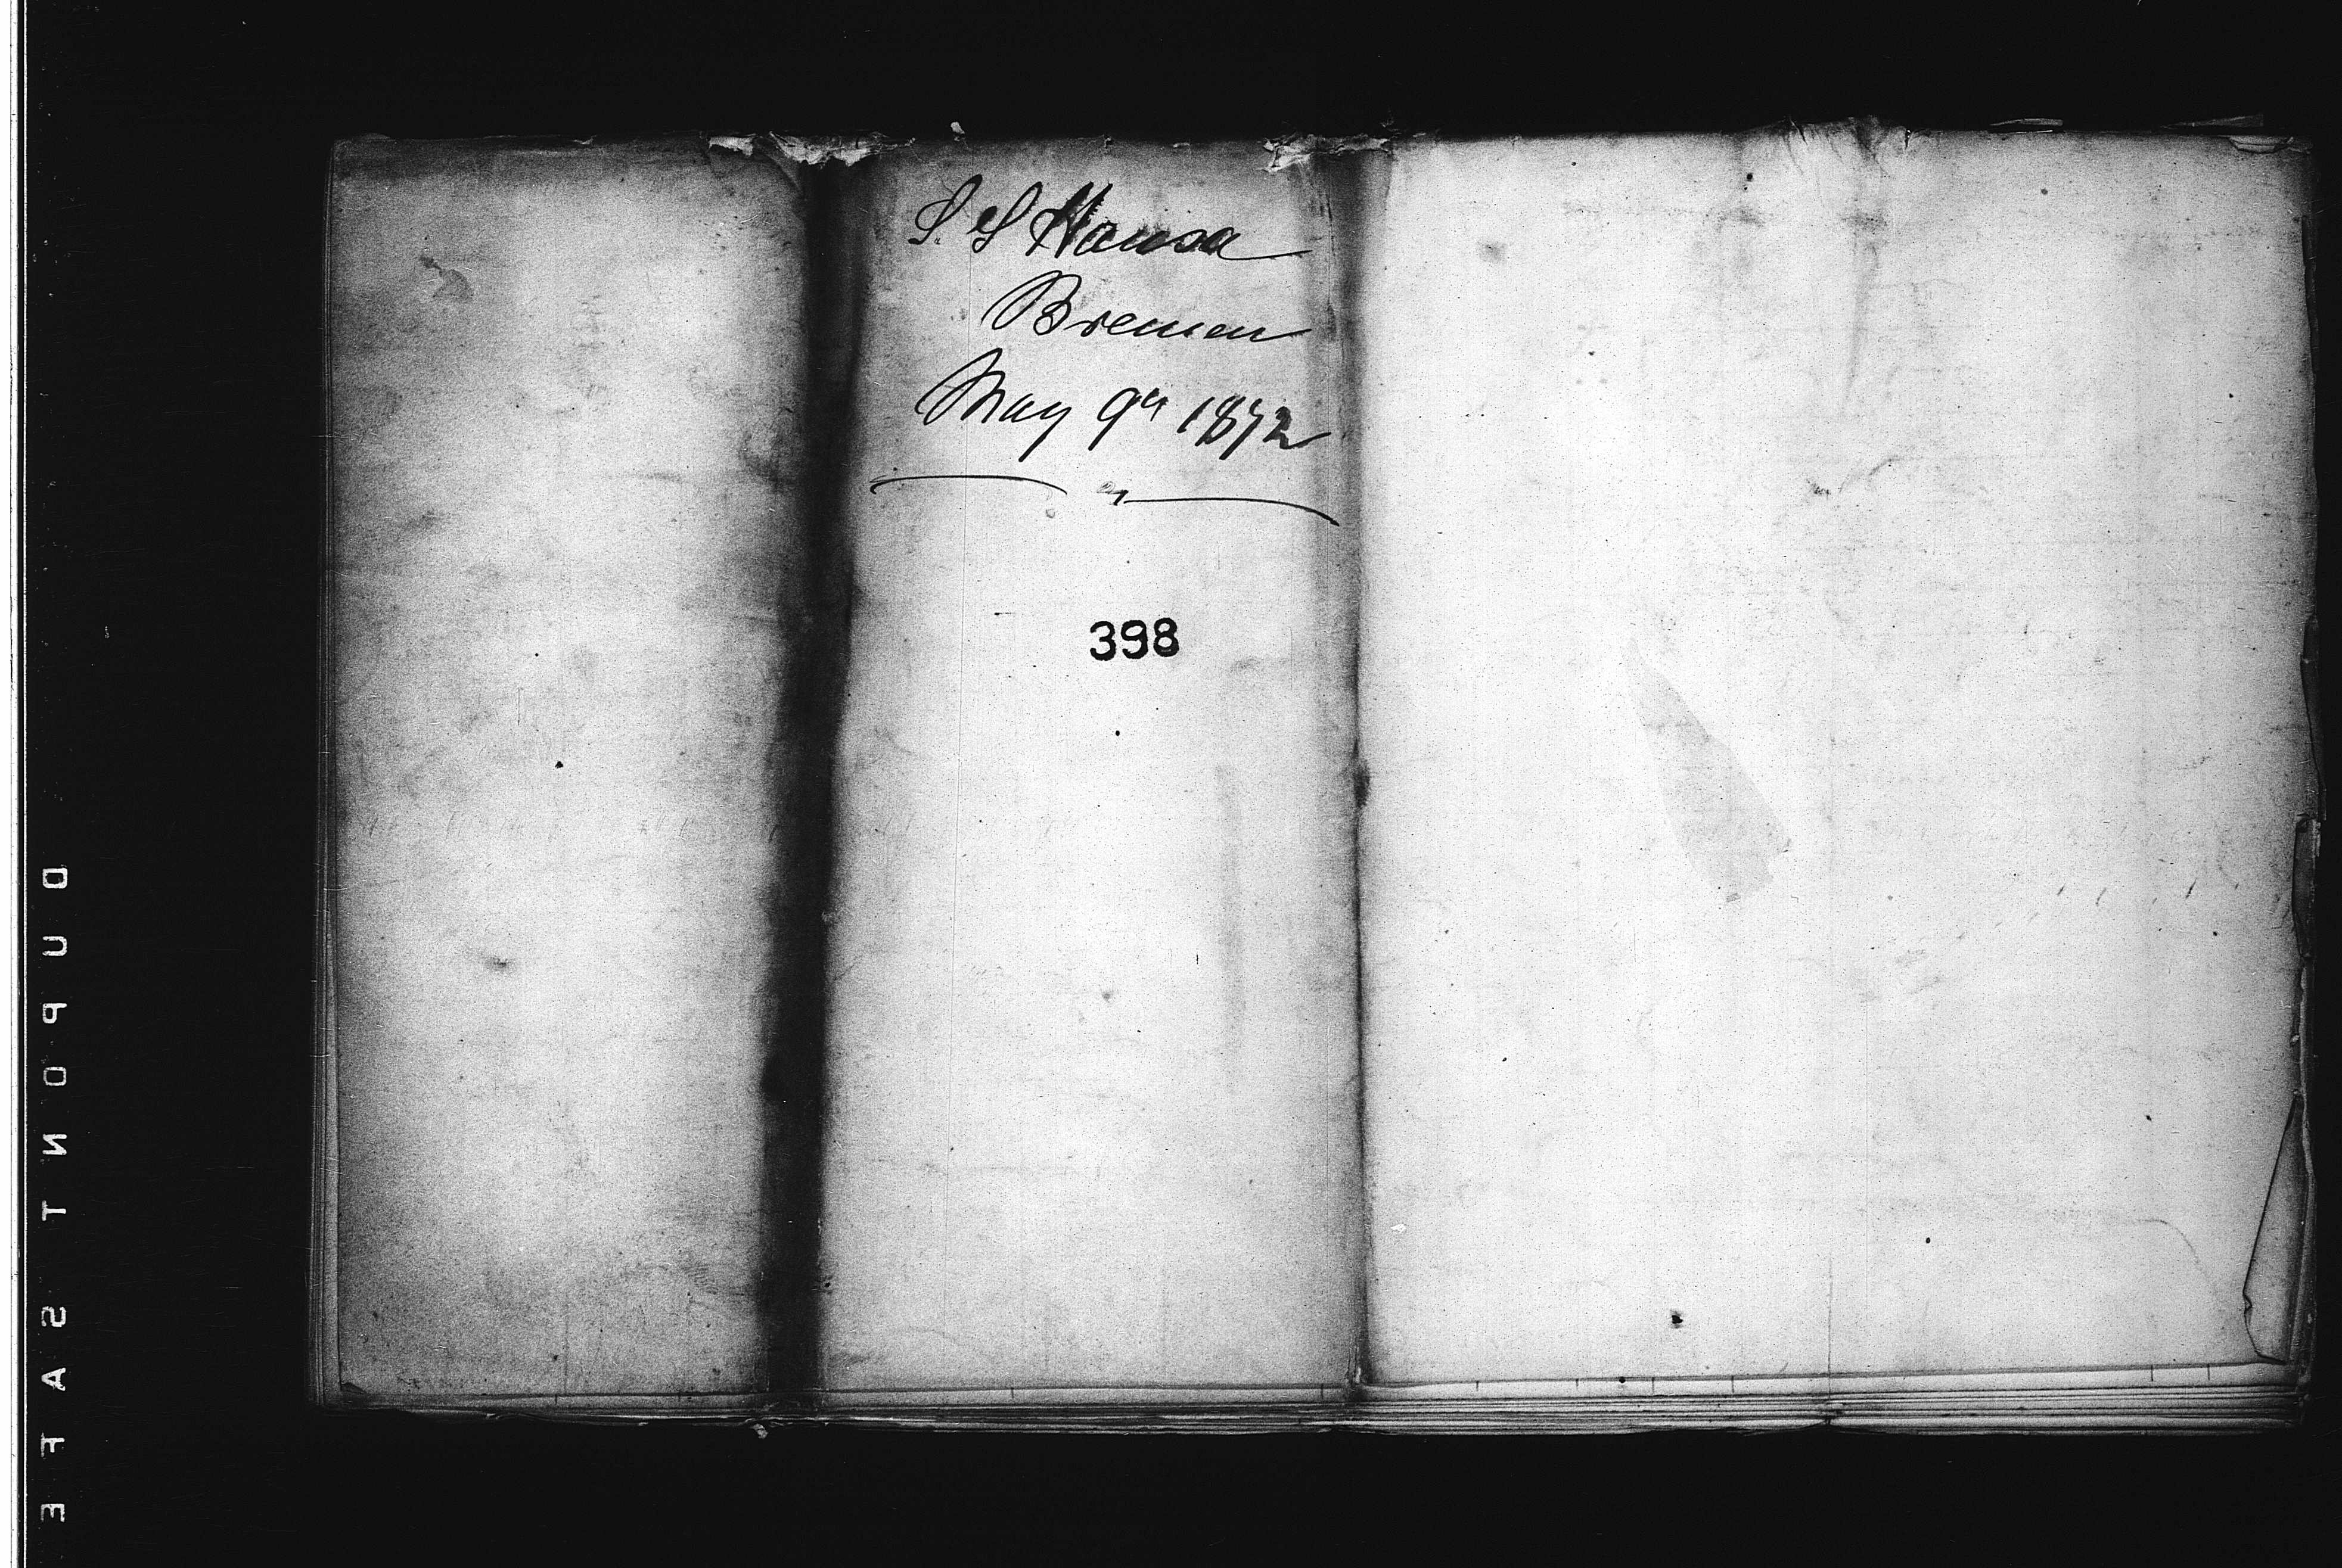 S.S Hansa
Bremen
May 9th 1872
398
DUPONT SAFE